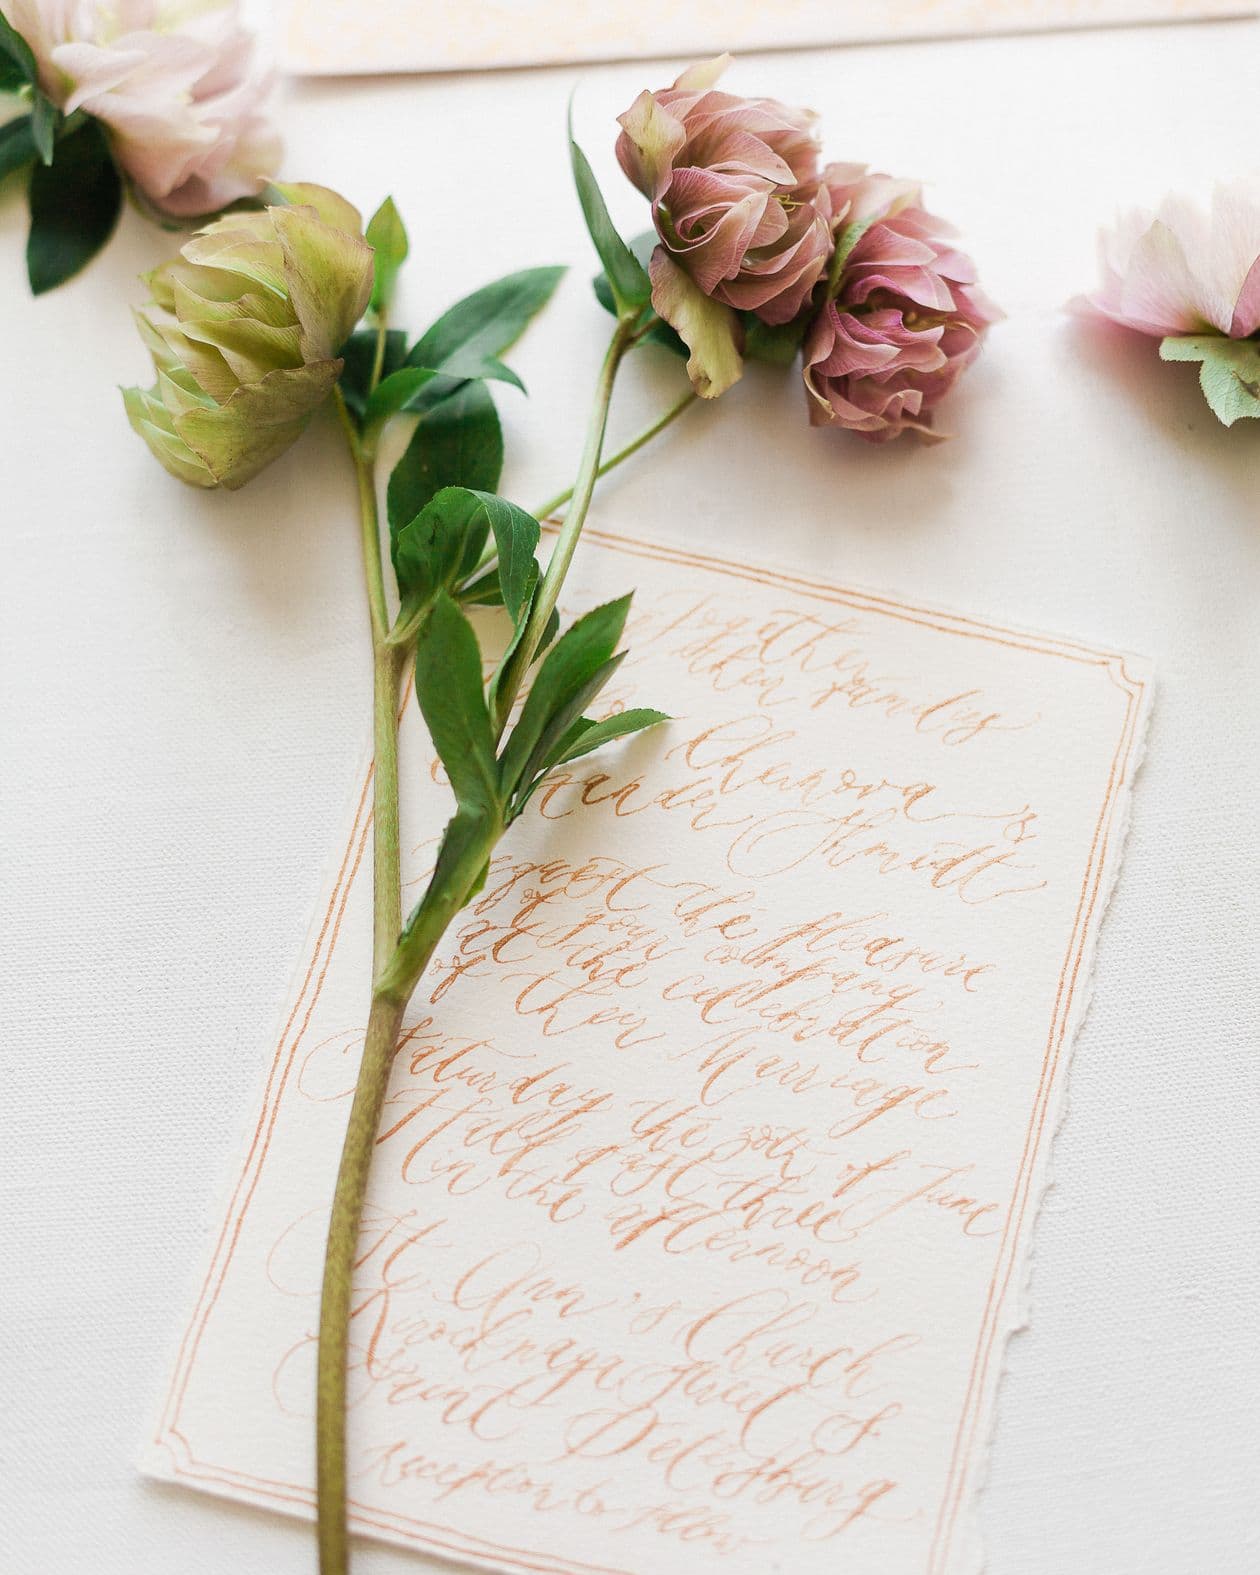 Together
with their families
Chernova &
ander Shmidt
request the pleasure
of your company
at the celebration
of their Marriage
Saturday the 30th of June
Half past three
in the afternoon
St Ann's Church
Kirochnaya street 8.
Saint Petersburg
Reception to follow